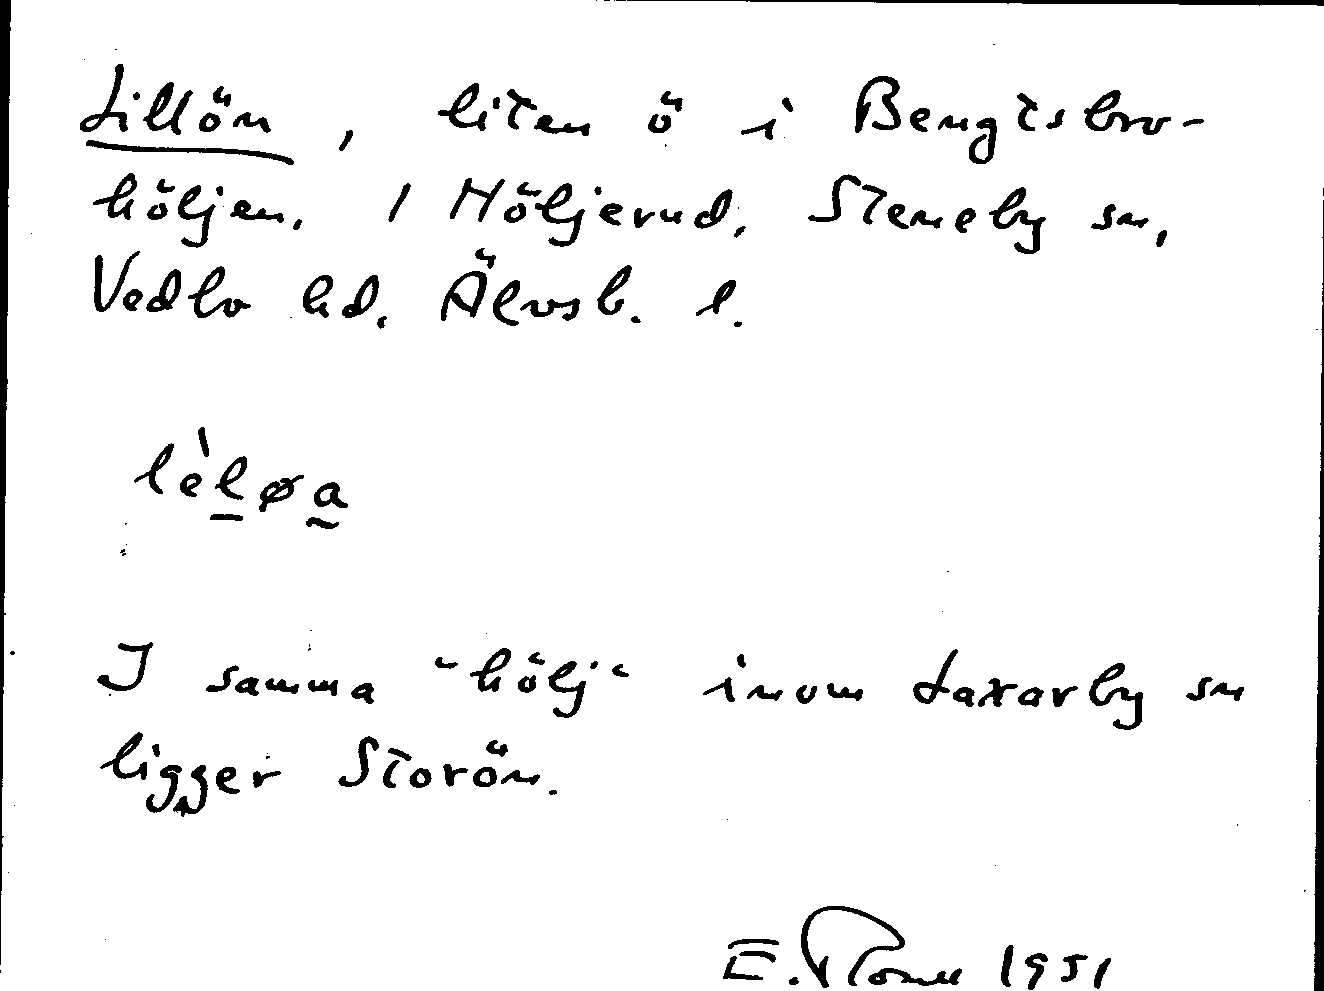 Lillön, liten ö i Bengtsbro-
höljen. I Höljerud, Steneby sn,
Vedbo hd. Älvsb. l.
lèløa
I samma "hölj" inom Laxarby sn
ligger Storön.
E. 1951